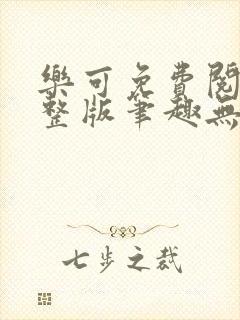 樂可免費閱
整版筆趣無
七步之裁